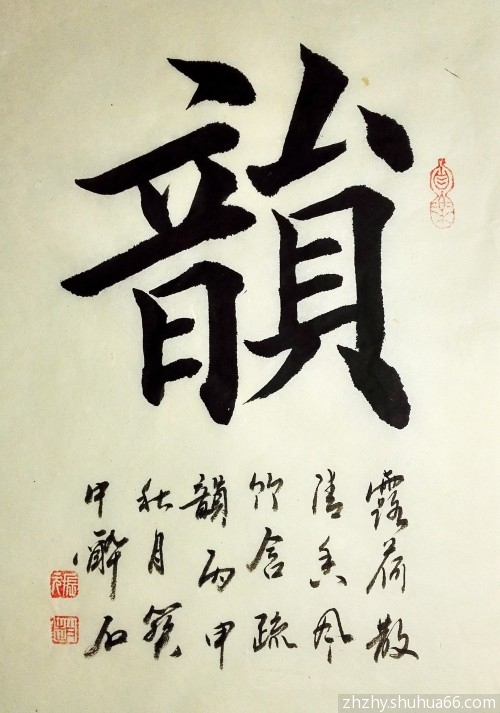 韻
露荷散
清香風
竹含疏
韻丙申
秋月
酔石
zhzhy.shuhua66.com